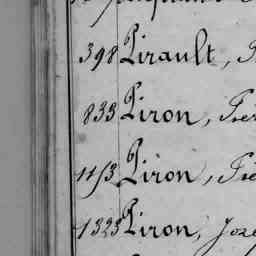 398 Pirault,
833 Piron, Pier
1153 Piron, Pie
1323 Piron, Joze